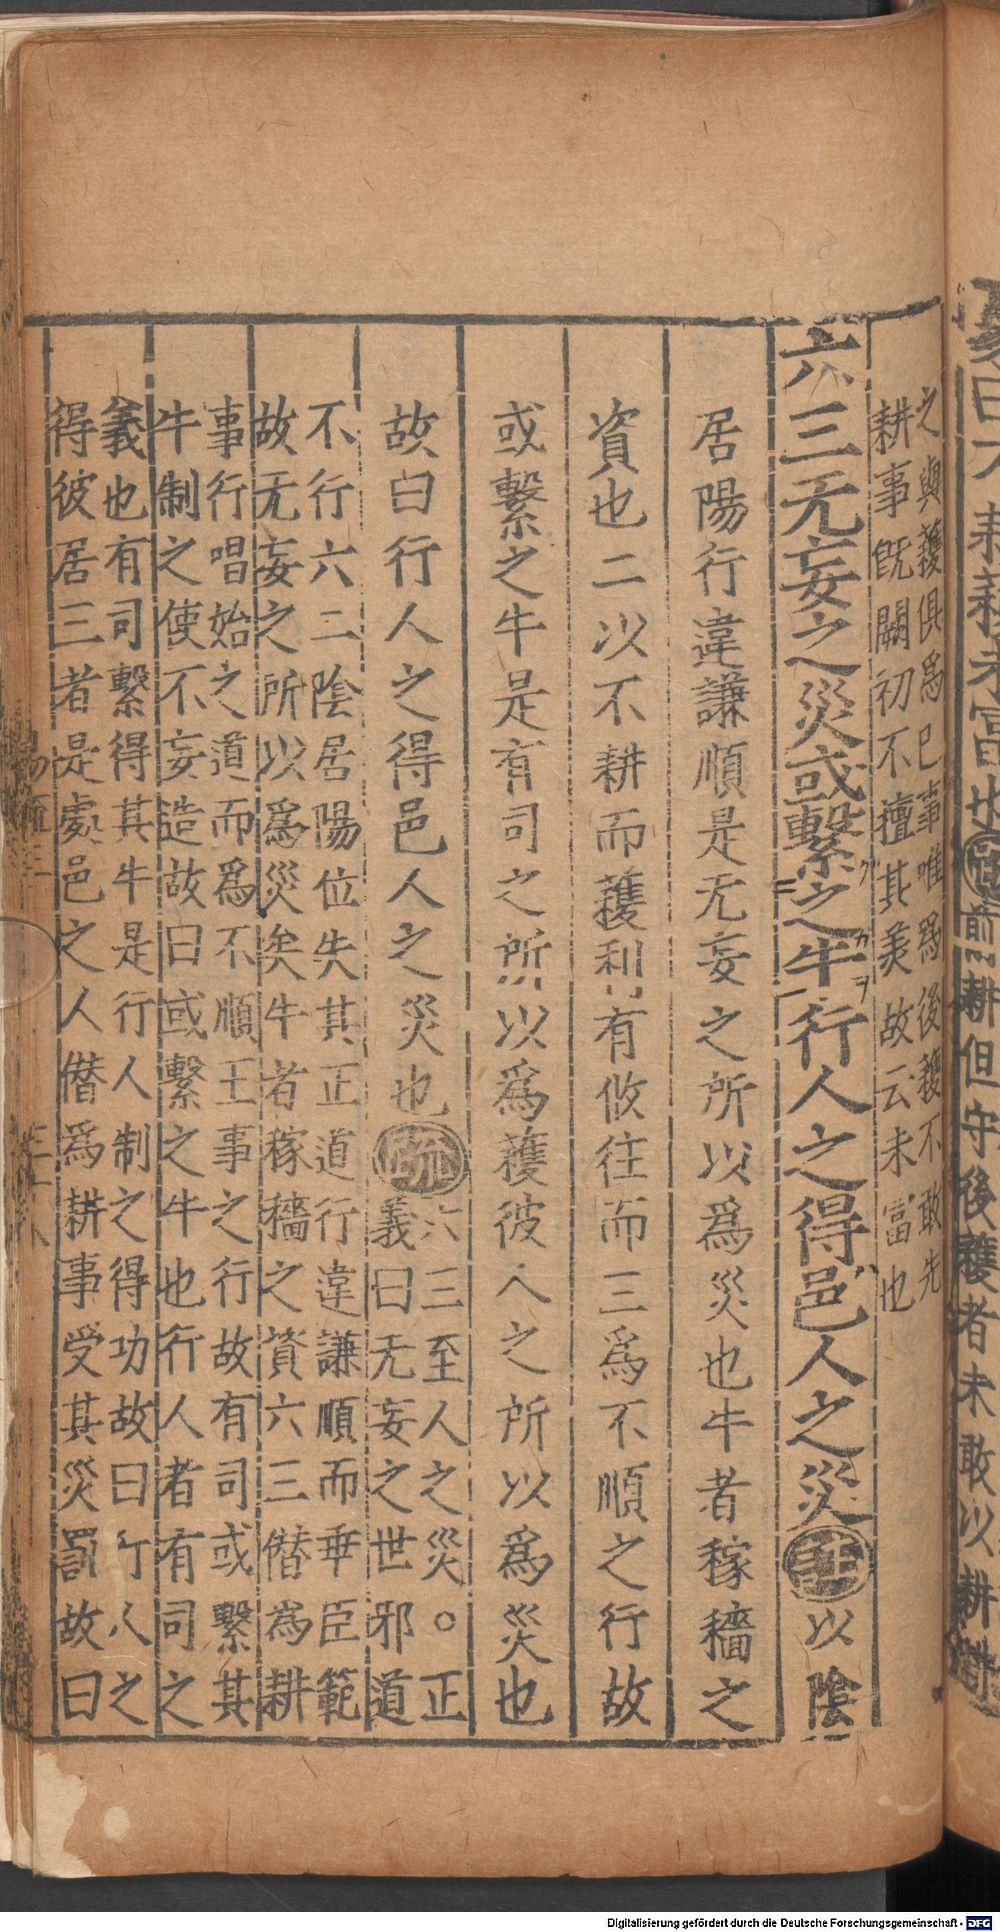 之與穫俱爲已事唯爲後穫不敢先
耕事旣闕初不擅其美故云未富也
六三无妄之災或繫之牛行人之得邑人之災注以陰
居陽行違謙順是无妄之所以爲災也牛者稼穡之
資也二以不耕而穫利有攸往而三爲不順之行故
或繫之牛是有司之所以爲穫彼人之所以爲災也
故曰行人之得邑人之災也疏六三至人之災。正
義曰无妄之世邪道
不行六三陰居陽位失其正道行違謙順而乖臣範
故无妄之所以爲災矣牛者稼穡之資六三僣爲耕
事行唱始之道而爲不順王事之行故有司或繫其
牛制之使不妄造故曰或繫之牛也行人者有司之
義也有司繫得其牛是行人制之得功故曰行人之
得彼居三者是處邑之人僣爲耕事受其災罰故曰
耕但守後穫者未敢以耕
Digitalisierung gefördert durch die Deutsche Forschungsgemeinschaft - DFG